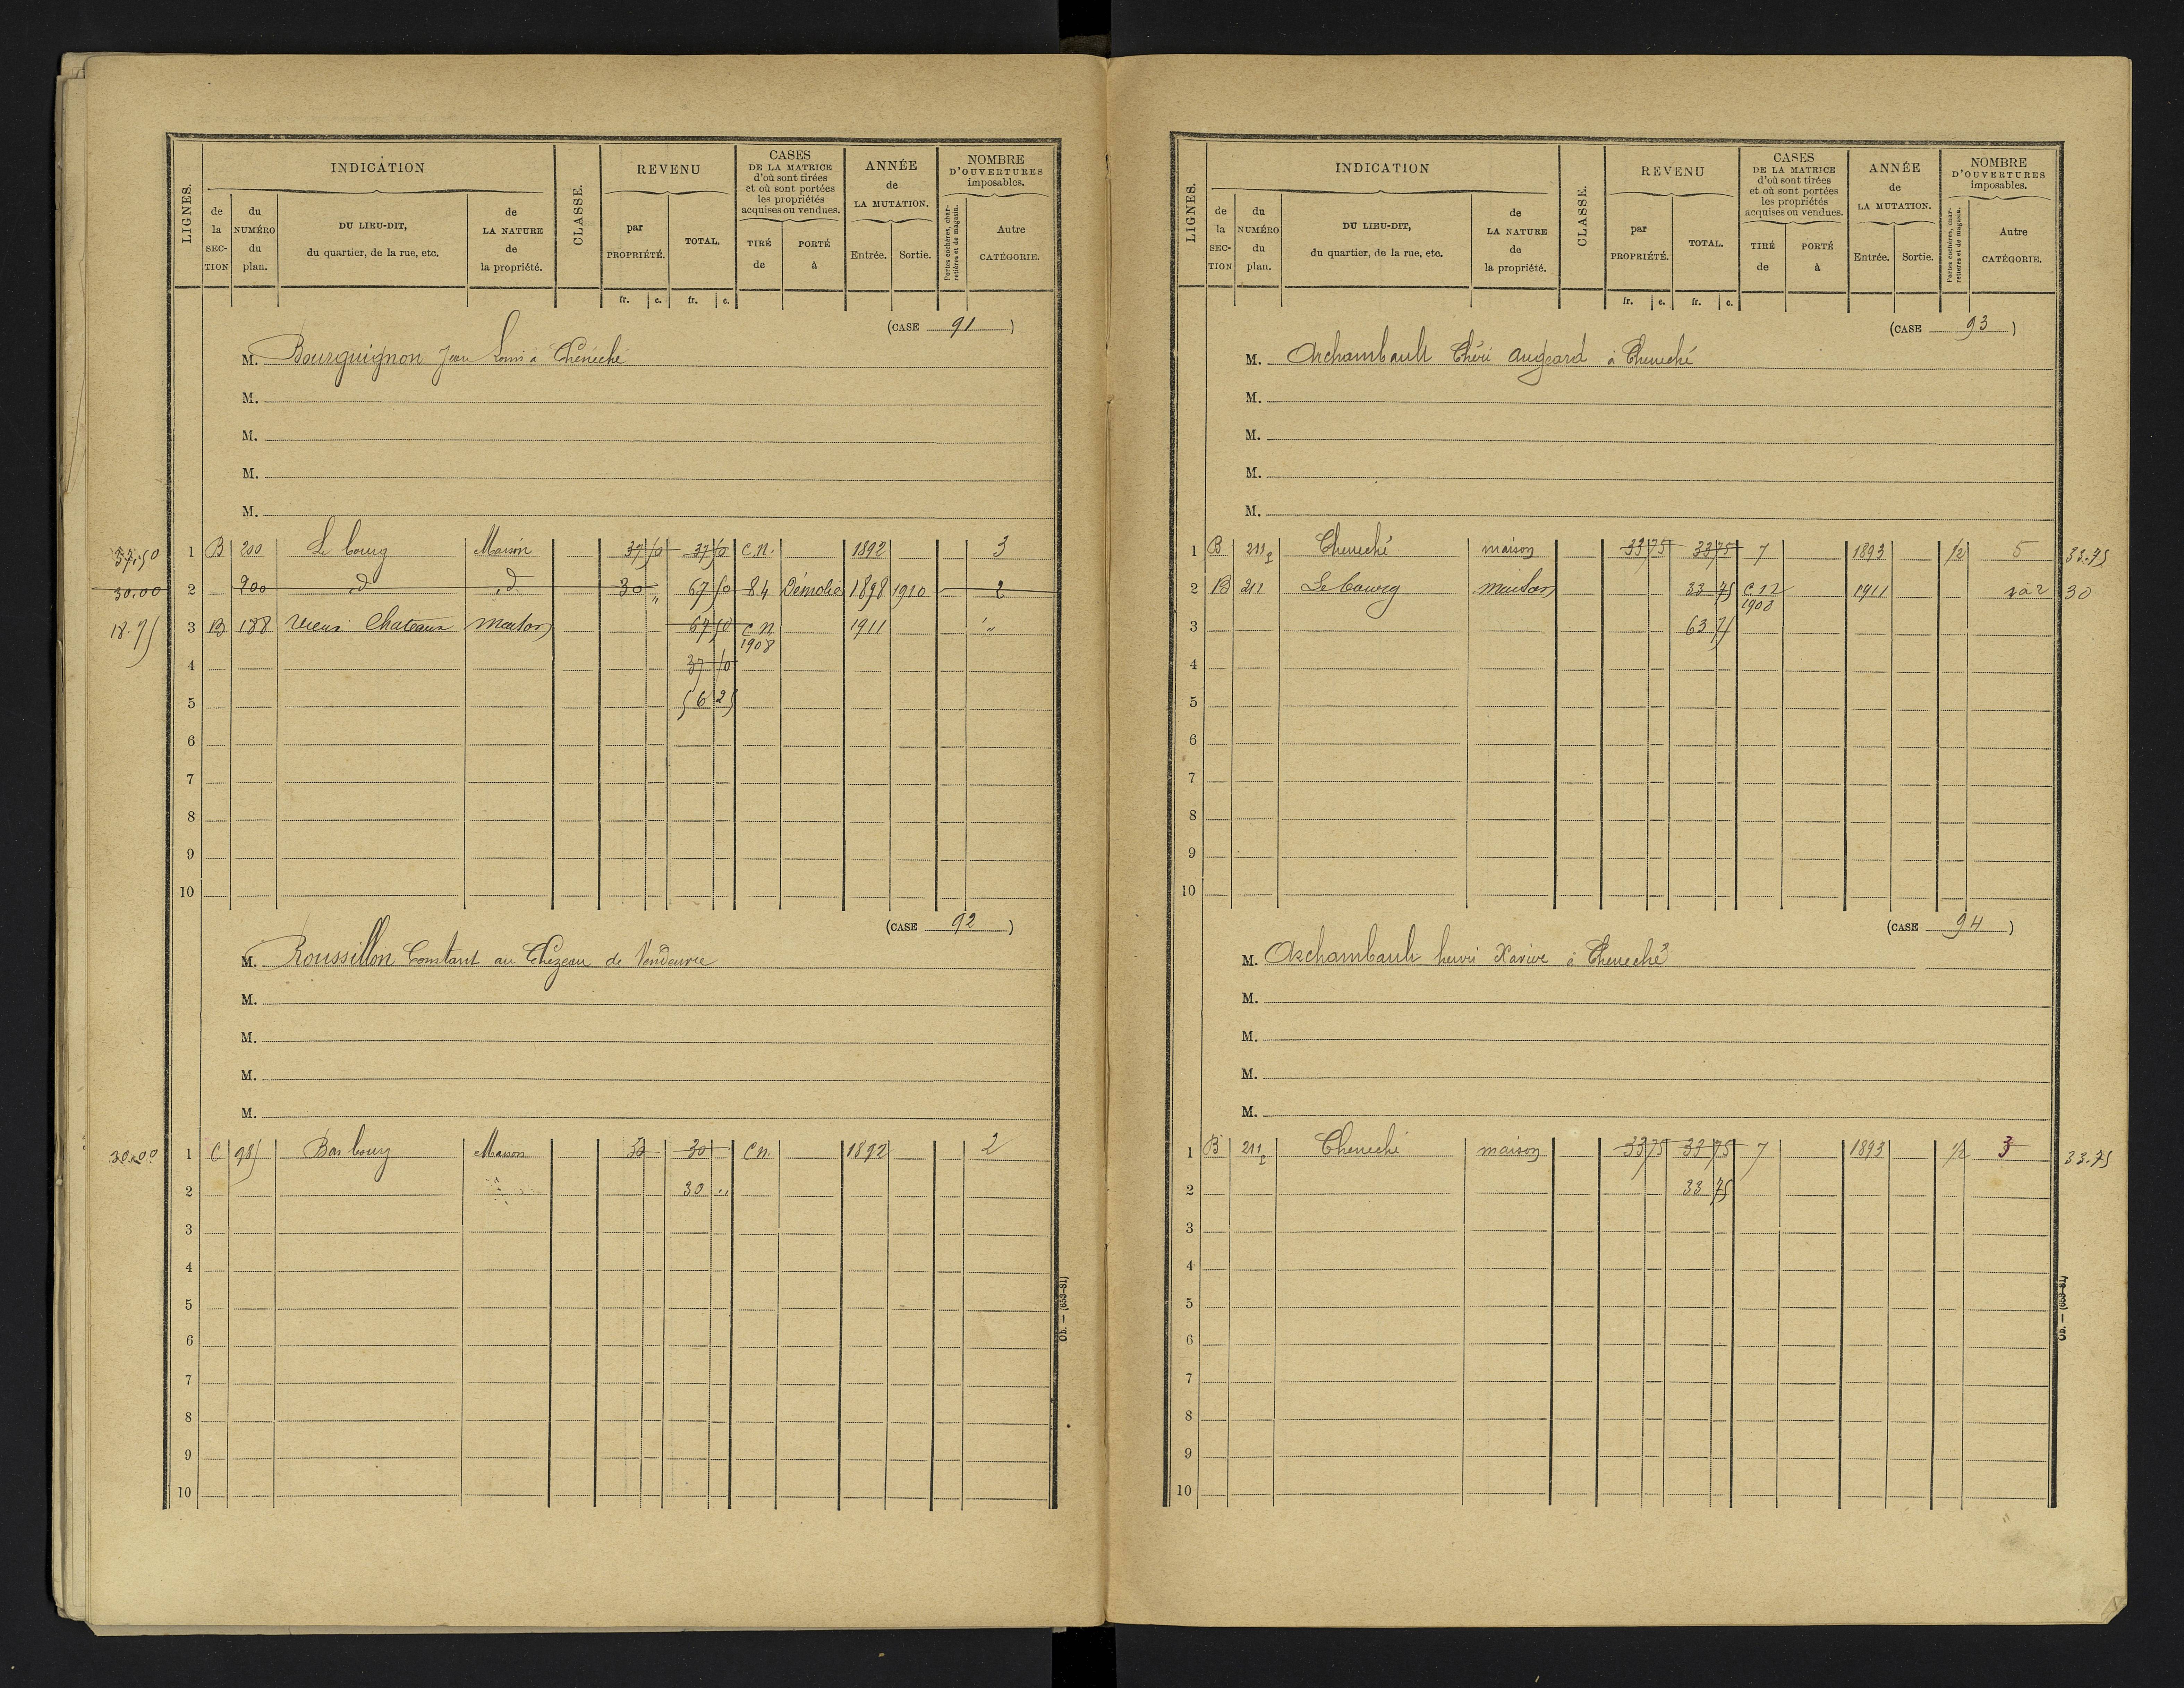 LIGNES. INDICATION CLASSE. REVENU CASES DE LA MATRICE d'où sont tirées et où sont portées les propriétés acquises ou vendues. ANNÉE de LA MUTATION. NOMBRE D'OUVERTURES imposables.
de la SECTION du NUMÉRO du plan. DU LIEU-DIT, du quartier, de la rue, etc. de LA NATURE de la propriété. par PROPRIÉTÉ. TOTAL. TIRÉ de PORTÉ à Entrée. Sortie. Portes cochères, charretières et de magasin. Autre CATÉGORIE.
fr. c. fr. c.
(CASE 91)
M. Bourguignon Jean Louis à Chéneché
M.
M.
M.
M.
37.50 1 B 200 Le bourg Maison 37 50 37 50 C.N. 1892 3
30.00 2 200 d d 30 " 67 50 84 Démolie 1898 1910 2
18.75 3 B 188 Vieux Chateaux maison 67 50 C N 1908 1911 "
4 37 50
5 56 25
6
7
8
9
10
(CASE 92)
M. Roussillon Constant au Chézeau de Vendeuvre
M.
M.
M.
M.
30.00 1 C 98 Bas bourg Maison 30 30 C N. 1892 2
2 30 "
3
4
5
6
7
8
9
10
Ob. — (653-81)
LIGNES. INDICATION CLASSE. REVENU CASES DE LA MATRICE d'où sont tirées et où sont portées les propriétés acquises ou vendues. ANNÉE de LA MUTATION. NOMBRE D'OUVERTURES imposables.
de la SECTION du NUMÉRO du plan. DU LIEU-DIT, du quartier, de la rue, etc. de LA NATURE de la propriété. par PROPRIÉTÉ. TOTAL. TIRÉ de PORTÉ à Entrée. Sortie. Portes cochères, charretières et de magasin. Autre CATÉGORIE.
fr. c. fr. c.
(CASE 93)
M. Archambault Chéri Augeard à Cheneché
M.
M.
M.
M.
1 B 211 Cheneché maison 33 75 33 75 7 1893 1/2 5 33.75
2 B 211 Le bourg maison 33 75 1908 1911 2 30
3 63 75
4
5
6
7
8
9
10
(CASE 94)
M. Archambault henri Xavier à Cheneché
M.
M.
M.
M.
1 B 211 Cheneché maison 33 75 33 75 7 1893 1/2 3 33.75
2 33 75
3
4
5
6
7
8
9
10
Ob. — (653-81)